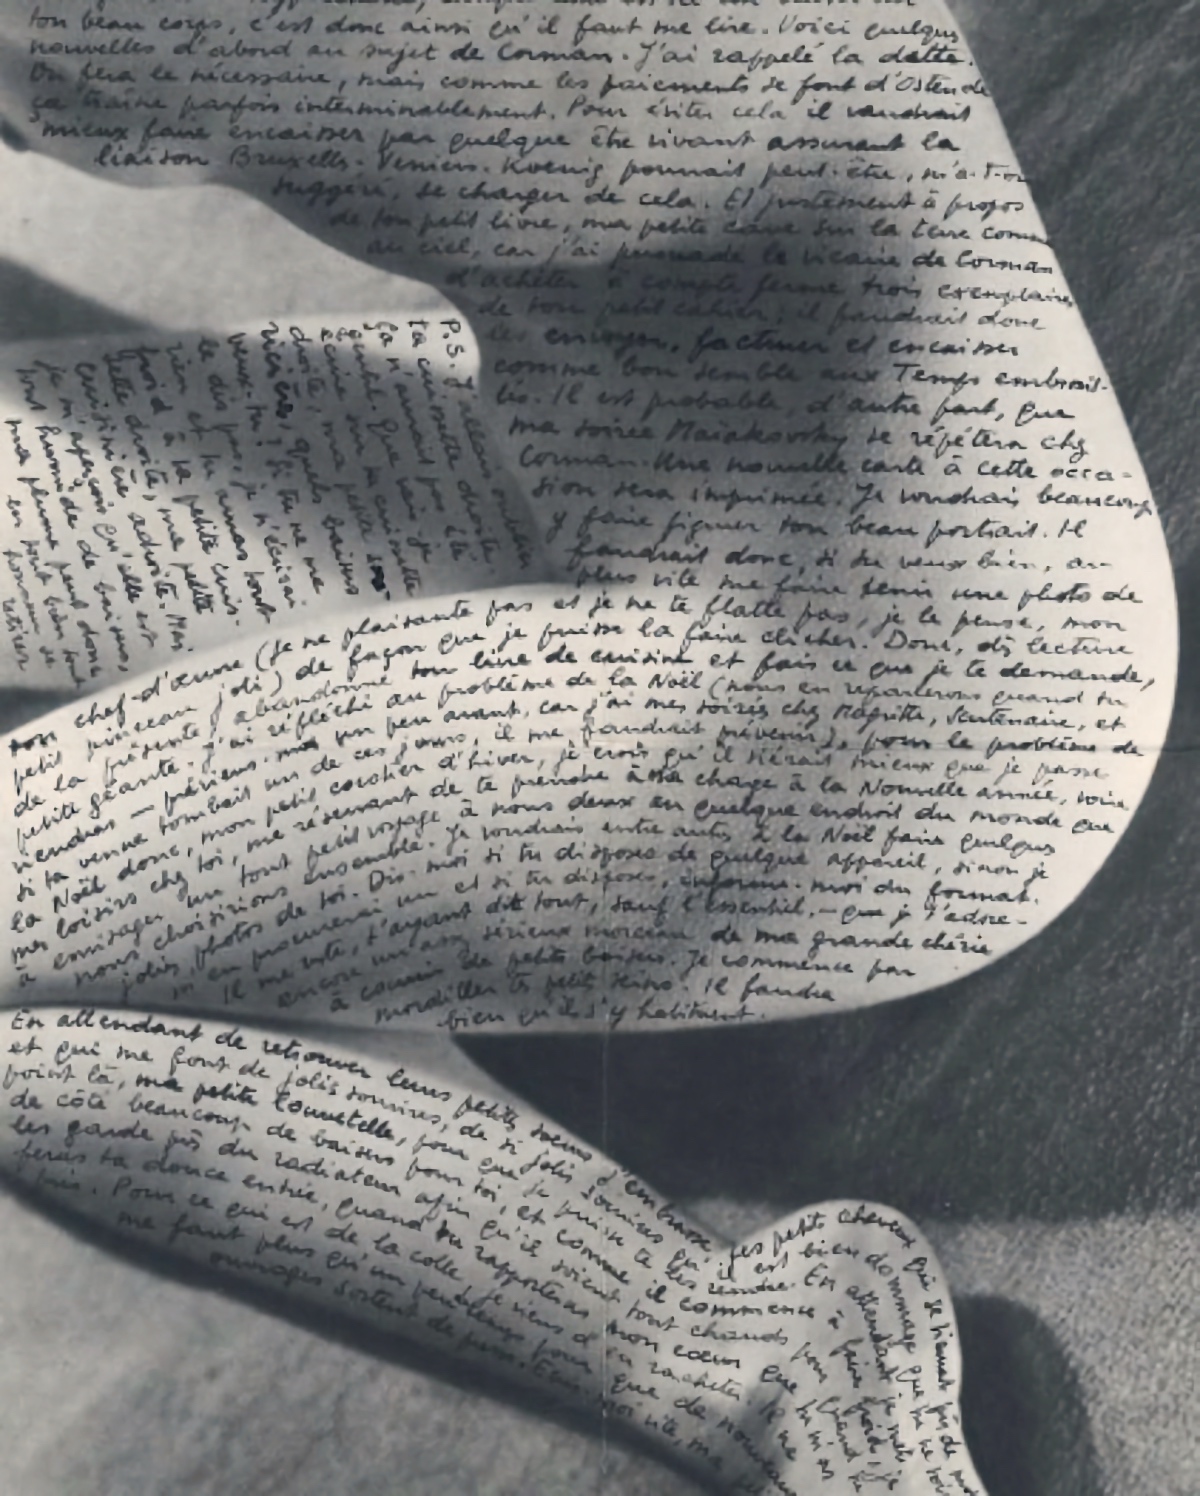 ton beau corps, c'est donc ainsi qu'il faut me lire. Voici quelques
nouvelles d'abord au sujet de Corman. J'ai rappelé la dette.
On fera le nécessaire, mais comme les paiements se font d'Ostende
ça traîne parfois interminablement. Pour éviter cela il vaudrait
mieux faire encaisser par quelque être vivant assurant la
liaison Bruxelles-Verviers. Koenig pourrait peut-être, m'a-t-on
suggéré, se charger de cela. Et justement à propos
de ton petit livre, ma petite caure sur la terre comme
au ciel, car j'ai persuadé le vicaire de Corman
d'acheter à compte ferme trois exemplaires
de ton petit cahier; il faudrait donc
les envoyer, facturer et encaisser
comme bon semble aux Temps embrouil-
lés. Il est probable, d'autre part, que
ma soirée Maïakovsky se répétera chez
Corman. Une nouvelle carte à cette occa-
sion sera imprimée. Je voudrais beaucoup
y faire figurer ton beau portrait. Il
faudrait donc, si tu veux bien, au
plus vite me faire tenir une photo de
ton chef-d'œuvre (je ne plaisante pas et je ne te flatte pas, je le pense, mon
petit pinceau joli) de façon que je puisse la faire clicher. Donc, dès lecture
de la présente, abandonne ton livre de cuisine et fais ce que je te demande,
petite géante. J'ai réfléchi au problème de la Noël (nous en reparlerons quand tu
viendras — préviens-moi un peu avant, car j'ai mes soirées chez Magritte, Scutenaire, et
si ta venue tombait un de ces jours, il me faudrait prévenir), pour le problème de
la Noël donc, mon petit cavalier d'hiver, je crois qu'il siérait mieux que je passe
mes loisirs chez toi, me réservant de te prendre à ma charge à la Nouvelle année, voire
à envisager un tout petit voyage à nous deux en quelque endroit du monde que
nous choisirions ensemble. Je voudrais entre autres à la Noël faire quelques
jolies photos de toi. Dis-moi si tu disposes de quelque appareil, sinon je
m'en procurerai un et si tu disposes, informe-moi du format.
Il me reste, t'ayant dit tout, sauf l'essentiel, — que je t'adore —
encore un assez sérieux morceau de ma grande chérie
à couvrir de petits baisers. Je commence par
mordiller tes petits seins. Il faudra
bien qu'ils s'y habituent.
P.S. J'allais oublier
ta cuissette droite.
Ça n'aurait pas été
gentil. Que vais-je
écrire sur ta cuissette
droite, ma petite
cuisinière, quels baisers
veux-tu? Si tu ne me
le dis pas, je n'écrirai
rien et tu auras tout
froid à ta petite cuis-
sette droite, ma petite
cuisinière adroite. Mais
je m'aperçois qu'elle est
tout humide de baisers,
ma plume peut donc
en tout bien tout
honneur se
retirer
En attendant de retrouver leurs petites sœurs j'embrasse tes petits cheveux qui se tiennent près de
et qui me font de jolis sourires, de si jolis sourires qu'il est bien dommage que tu ne sois
point là, ma petite Connetelle, pour que je puisse te les rendre. En attendant je mets
de côté beaucoup de baisers pour toi, et comme il commence à faire froid, je
les garde près du radiateur afin qu'ils soient tout chauds pour quand tu
feras ta douce entrée, quand tu rapporteras mon cœur que tu m'as
pris. Pour ce qui est de la colle, je viens d'en racheter. Il ne
me faut plus qu'un peu de temps pour que de nouveaux
ouvrages sortent de Écris-moi vite, ma